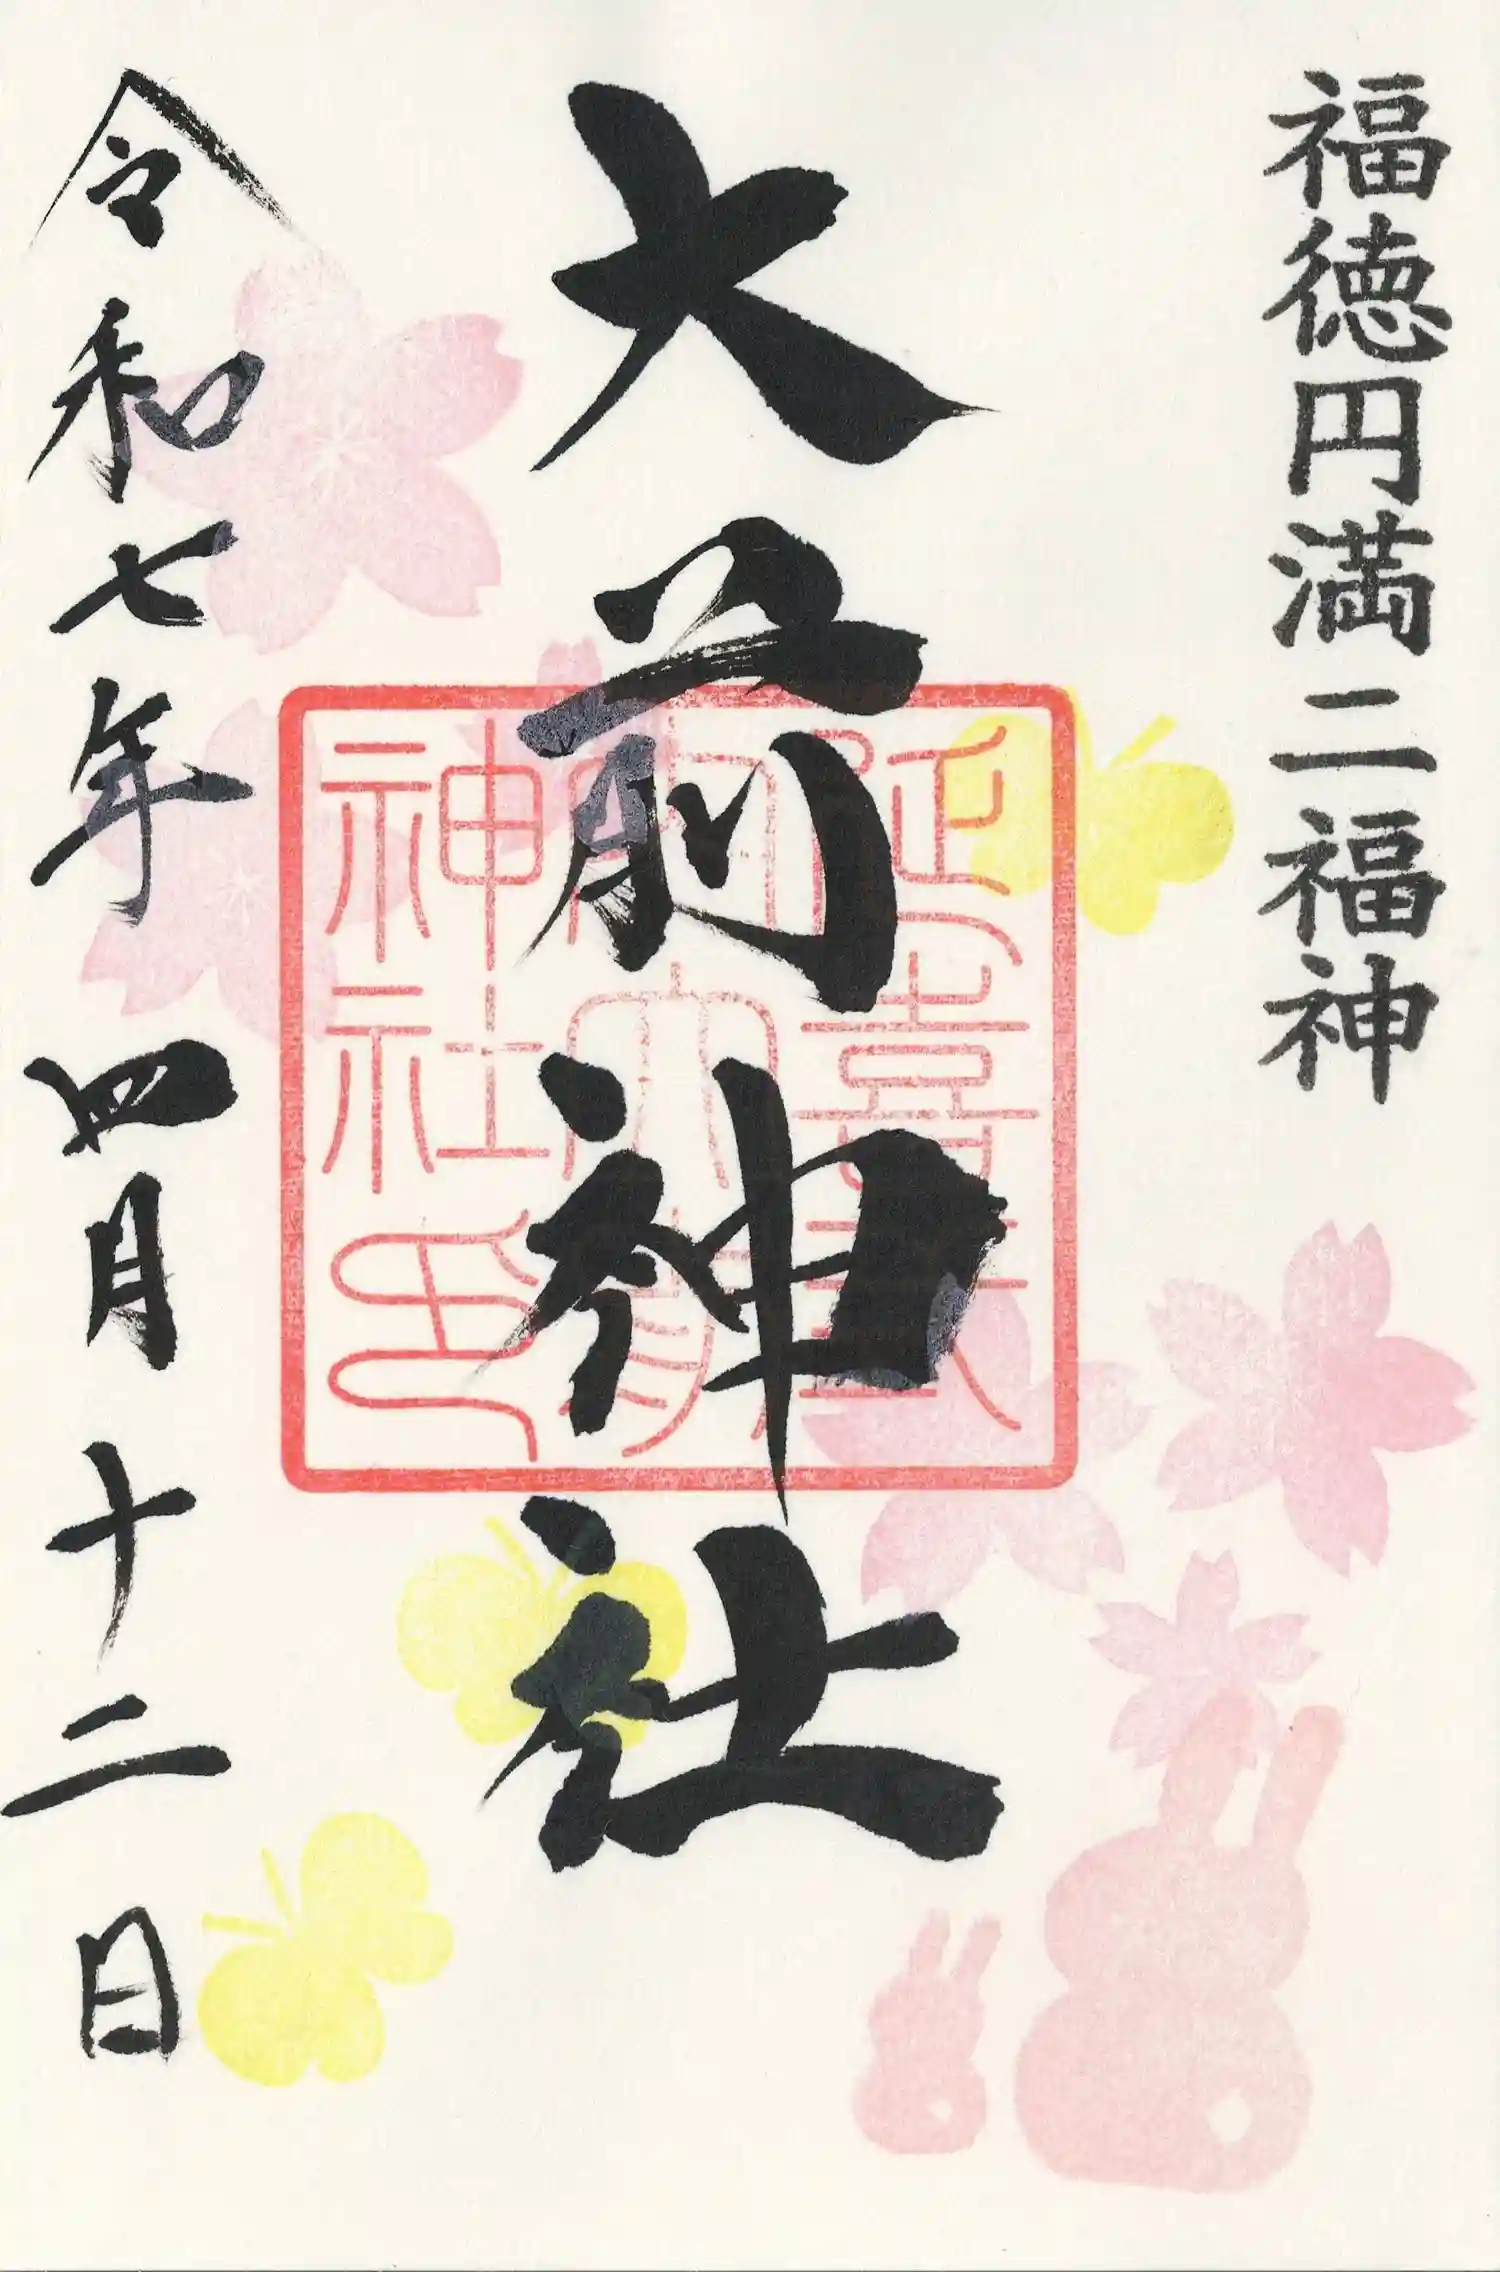 福徳円満二福神
大前神社
延喜式
内大前
神社印
令和七年四月十二日